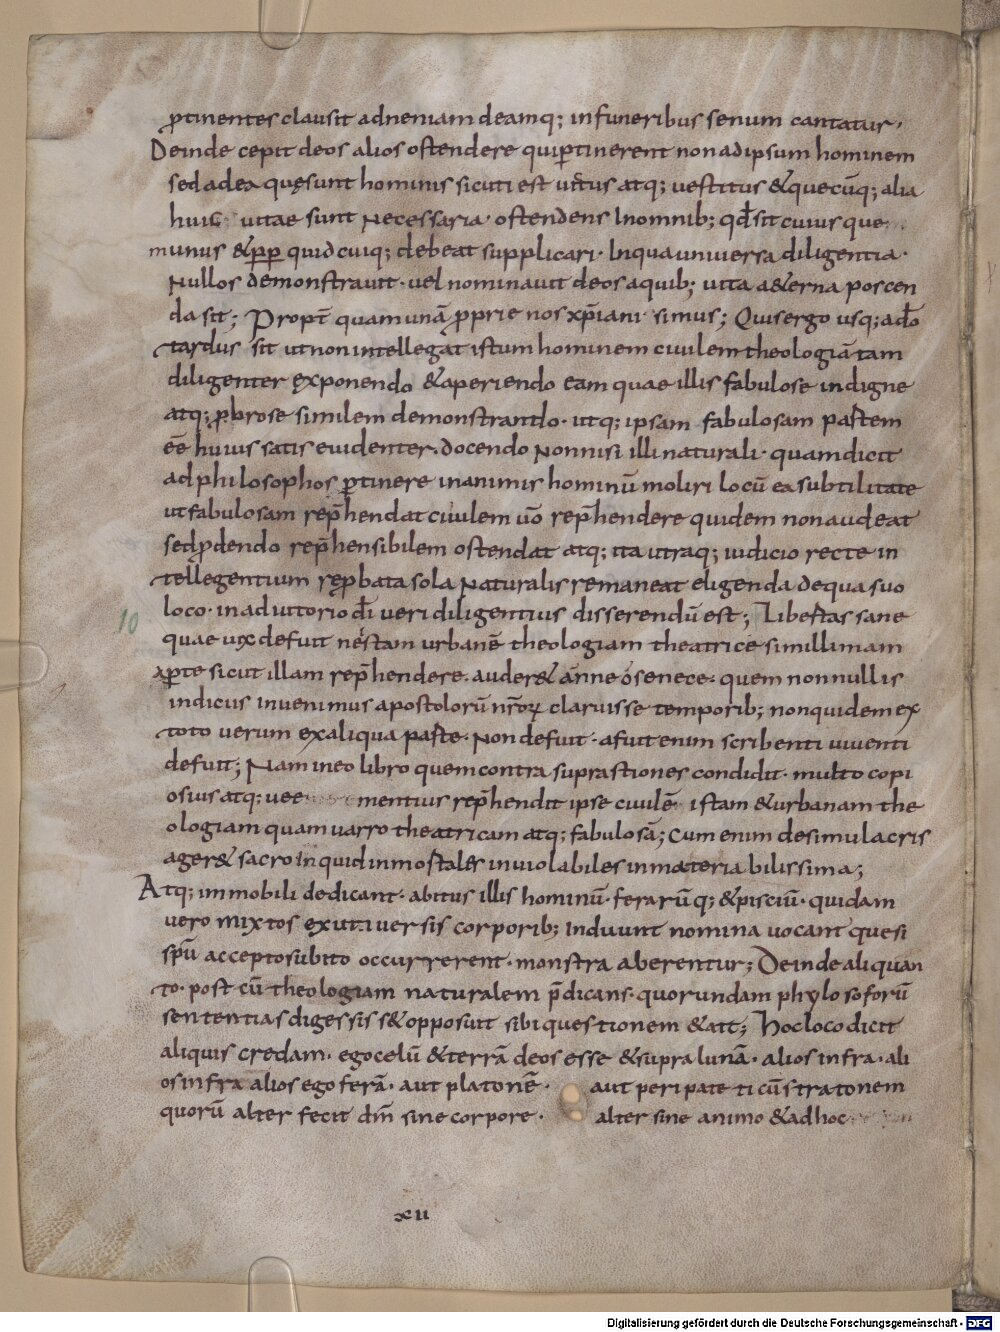 ꝑtinentes clausit adneniam deamq; infuneribus senum cantatur.
Deinde cepit deos alios ostendere quiꝑtinerent nonadipsum hominem
sed adea quęsunt hominis sicuti est uictus atq; uestitus &quecūq; alia
huic uitae sunt necessaria· ostendens Inomnib; qđ sit cuius que
munus &ꝓp quid cuiq; debeat supplicari· Inquauniuersa diligentia·
Nullos demonstrauit· uel nominauit deos aquib; uita a&erna poscen
da sit; Propt̄ quam unā ꝓprie nos xp̄iani simus; Quisergo usq; adeo
tardus sit utnon intellegat istum hominem ciuilem theologiā tam
diligenter exponendo &aperiendo eam quae illis fabulose indigne
atq; ꝓbrose similem demonstrando· itq; ipsam fabulosam partem
eē huius satis euidenter· docendo Nonnisi illi naturali· quam dicit
ad philosophos ꝑtinere inanimis hominū moliri locū ea subtilitate
ut fabulosam rep̄hendat ciuilem uō rep̄hendere quidem non audeat
sed ꝓdendo rep̄hensibilem ostendat atq; ita utraq; iudicio recte in
tellegentium reꝓbata sola Naturalis remaneat eligenda dequa suo
loco· inadiutorio dī ueri diligentius disserendū est; Libertas sane
quae uix defuit ne istam urbanē theologiam theatrice simillimam
aꝑte sicut illam rep̄hendere· auder& ánneó senece· quem nonnullis
indiciis inuenimus apostolorū nrōꝝ claruisse temporib; non quidem ex
toto uerum exaliqua parte· Non defuit· afuit enim scribenti uiuenti
defuit; Nam ineo libro quem contra suprastiones condidit· multo copi
osius atq; uee mentius rep̄hendit ipse ciuilē istam &urbanam the
ologiam quam uarro theatricam atq; fabulosā; Cum enim desimulacris
ager& sacro inquid inmortales inuiolabiles in materia bilissima;
Atq; immobili dedicant· abitus illis hominū· ferarūq; &pisciū· quidam
uero mixtos exuti uersis corporib; Induunt nomina uocant quesi
spū accepto subito occurrerent· monstra aberentur; Deinde aliquan
to· post cū theologiam naturalem p̄dicans· quorundam phylosoforū
sententias digessis s& opposuit sibi questionem &ait; Hocloco dicit
aliquis credam· egocelū &terrā deos esse &supra lunā· alios infra· ali
os infra alios ego ferā· aut platonē· aut peripateticū stratonem
quorū alter fecit dm̄ sine corpore· alter sine animo &adhoc
xii
10
Digitalisierung gefördert durch die Deutsche Forschungsgemeinschaft - DFG